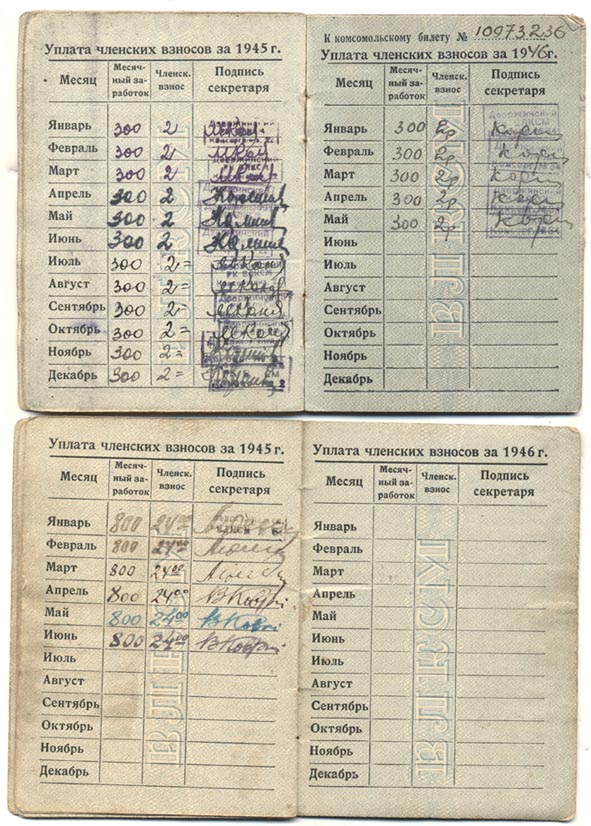 Уплата членских взносов за 1945 г.
Месяц Месяч-ный за-работок Членск. взнос Подпись секретаря
Январь 300 2
Февраль 300 2
Март 300 2
Апрель 300 2
Май 300 2
Июнь 300 2
Июль 300 2=
Август 300 2=
Сентябрь 300 2=
Октябрь 300 2=
Ноябрь 300 2=
Декабрь 300 2=
К комсомольскому билету № 10973236
Уплата членских взносов за 1946 г.
Месяц Месяч-ный за-работок Членск. взнос Подпись секретаря
Январь 300 2р
Февраль 300 2р
Март 300 2р
Апрель 300 2р
Май 300 2р
Июнь
Июль
Август
Сентябрь
Октябрь
Ноябрь
Декабрь
ВЛКСМ
Уплата членских взносов за 1945 г.
Месяц Месяч-ный за-работок Членск. взнос Подпись секретаря
Январь 800 24⁰⁰
Февраль 800 24⁰⁰
Март 800 24⁰⁰
Апрель 800 24⁰⁰
Май 800 24⁰⁰
Июнь 800 24⁰⁰
Июль
Август
Сентябрь
Октябрь
Ноябрь
Декабрь
ВЛКСМ
Уплата членских взносов за 1946 г.
Месяц Месяч-ный за-работок Членск. взнос Подпись секретаря
Январь
Февраль
Март
Апрель
Май
Июнь
Июль
Август
Сентябрь
Октябрь
Ноябрь
Декабрь
ВЛКСМ